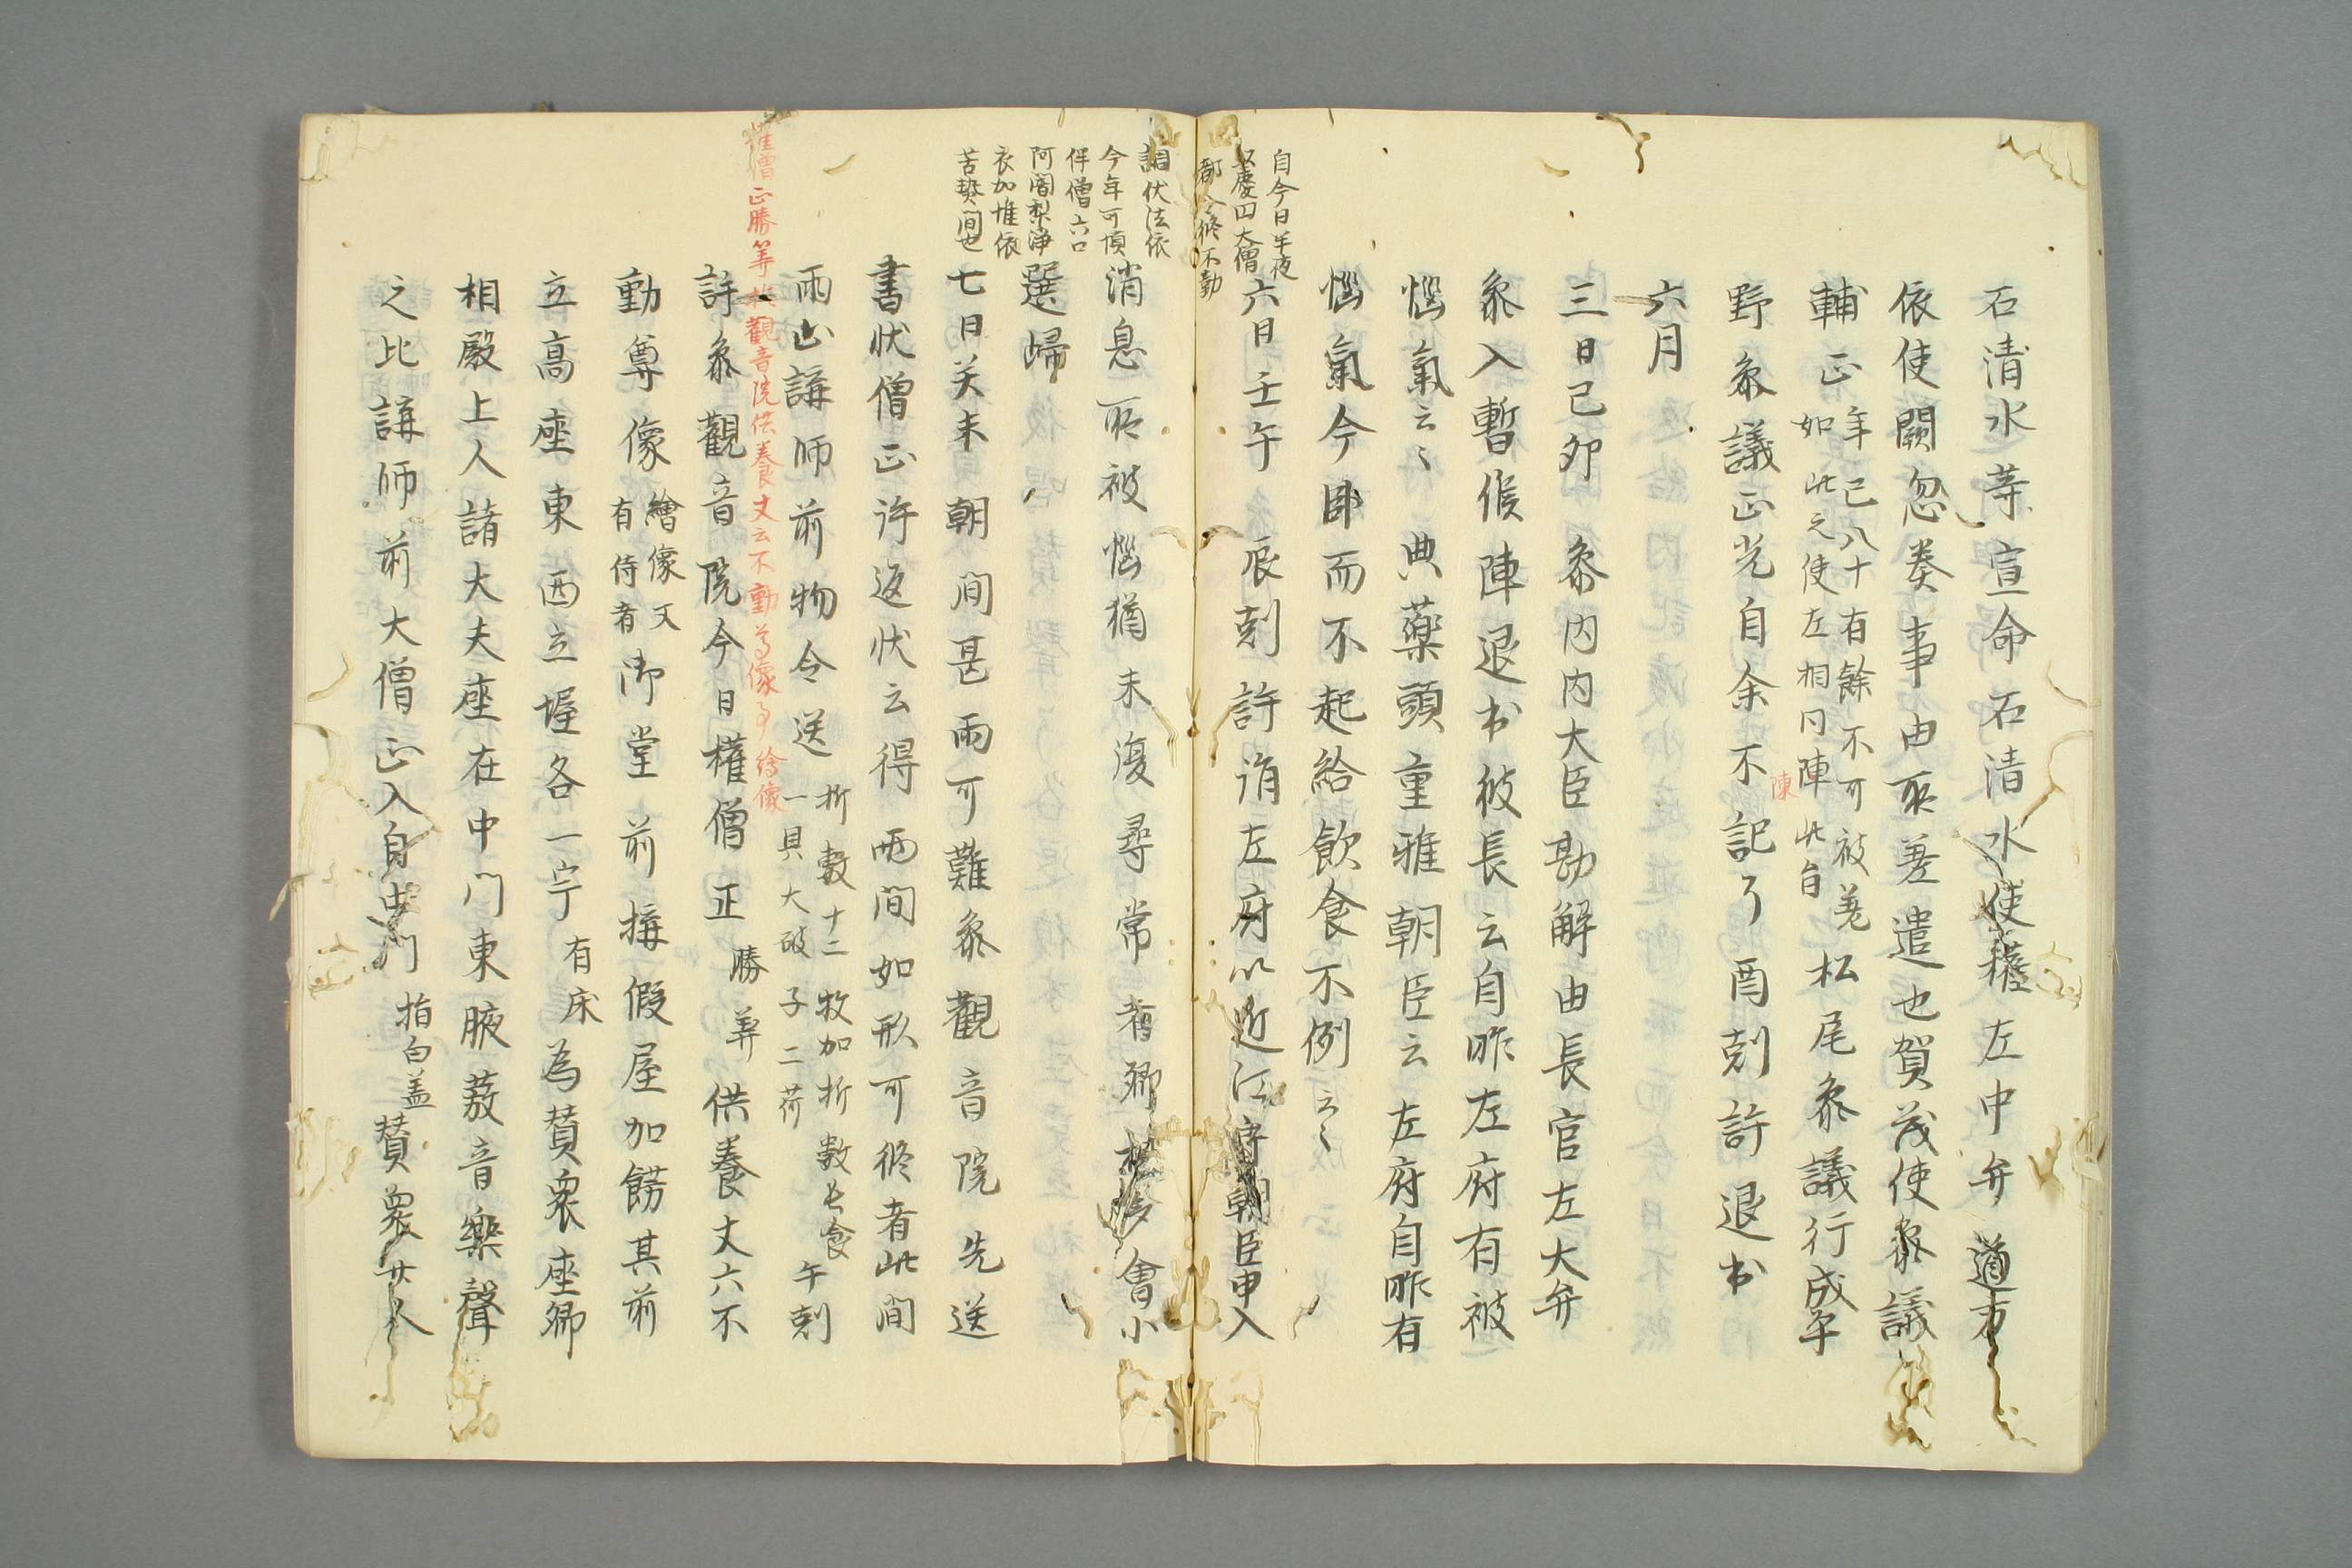 石清水等宣命石清水使権左中弁道方
依使闕忽奏事由所差遣也賀茂使参議
輔正年已八十有餘不可被差
如此之使左相同陣此旨松尾参議行成平
陳
野参議正光自余不記了酉剋許退出
六月
三日己卯参内内大臣勘解由長官左大弁
参入暫候陣退出彼長云自昨左府有被
悩氣云々典薬頭重雅朝臣云左府自昨有
悩氣今日臥而不起給飲食不例云々
自今日半夜
慶円大僧
都令修不動
六日壬午辰剋許詣左府以近江守朝臣申入
消息所被悩猶未復尋常者卿相多會小
選帰
調伏法依
今年可慎
伴僧六口
阿闍梨浄
衣加堆依
苦熱間也
七日癸未朝間甚雨可難参觀音院先送
書状僧正許返状云得雨間如形可修者此間
雨止講師前物令送折敷十二枚加折敷長食
一具大破子二荷午剋
権僧正勝筭於觀音院供養丈云不動尊像事繪像
許参觀音院今日權僧正勝筭供養丈六不
動尊像繪像又
有侍者御堂前構假屋加餝其前
立高座東西立幄各一宇有床為賛衆座卿
相殿上人諸大夫座在中門東腋發音樂聲
之比講師前大僧正入自中門指白盖賛衆廿人